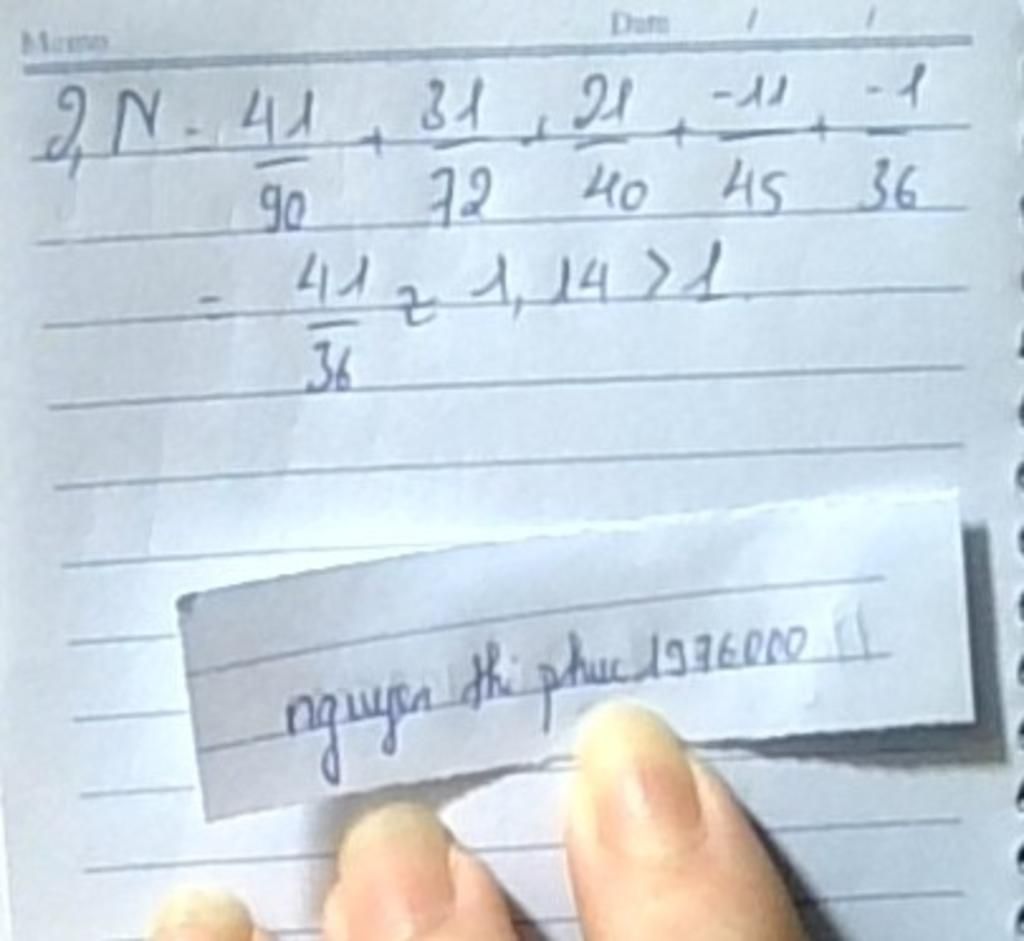 Memo Date / /
2, N = 41/90 + 31/72 + 21/40 + -11/45 + -1/36
= 41/36 ≈ 1,14 > 1
nguyen thi phuc 1976000